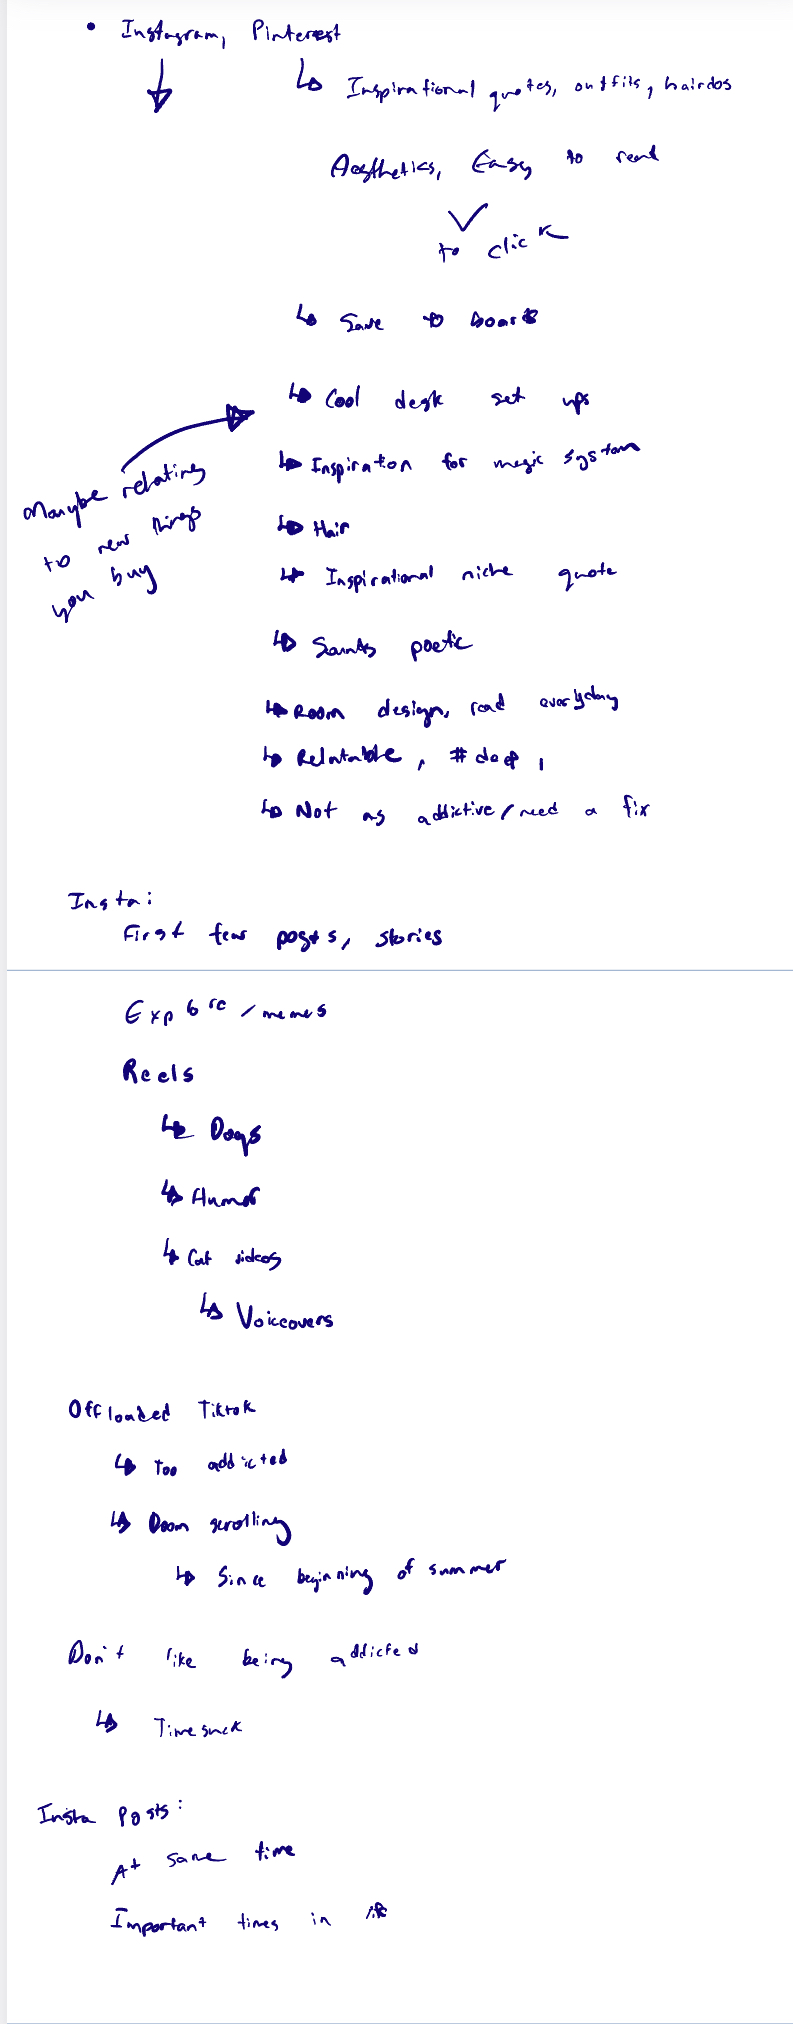 • Instagram, Pinterest
Inspirational quotes, outfits, hairdos
Aesthetics, Easy to read
to click
Save to boards
Cool desk set ups
Maybe relating
to new things
you buy
Inspiration for magic system
Hair
Inspirational niche quote
Sounds poetic
Room design, read everyday
Relatable, #deep,
Not as addictive/need a fix
Insta:
First few posts, stories
Explore/memes
Reels
Dogs
Humor
Cat videos
Voiceovers
Offloaded Tiktok
Too addicted
Doom scrolling
Since beginning of summer
Don't like being addicted
Timesuck
Insta Posts:
At same time
Important times in life